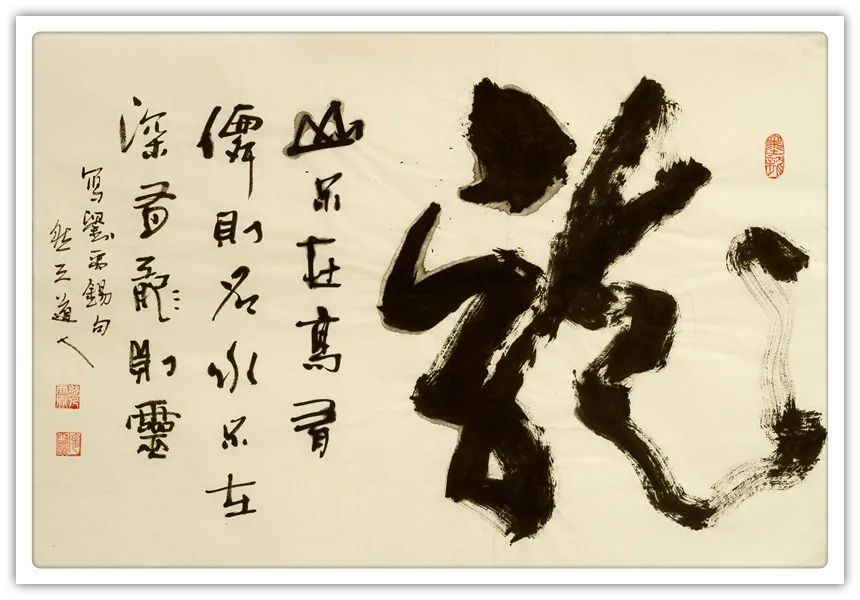 龍
山不在高有
僊則名水不在
深有龍則靈
寫劉禹錫句
道人